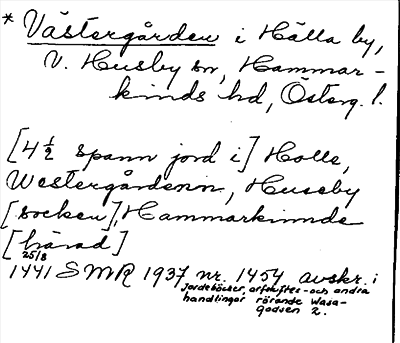 * Västergården i Hälla by,
V. Husby sn, Hammar-
kinds hd, Österg. l.
[4½ spann jord i] Holle,
Westergårdenin, Huseby
[socken], Hammarkinnde
[härad]
25/8
1441 SMR 1937 nr. 1454 avskr. i
Jordeböcker, arfskiftes- och andra
handlingar rörande Wasa-
godsen 2.